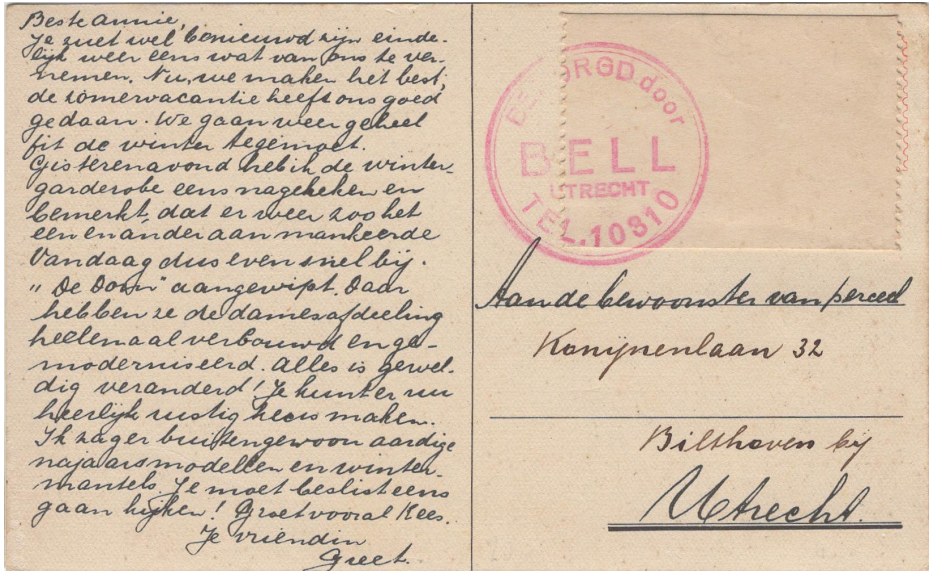 Beste Annie,
Je zuet wel benieuwd zijn einde-
lijk weer eens wat van ons te ver-
nemen. Nu, we maken het best,
de zomervacantie heeft ons goed
gedaan. We gaan weer geheel
fit de winter tegemoet.
Gisterenavond heb ik de winter-
garderobe eens nagekeken en
bemerkt, dat er weer zoo het
een en ander aan mankeerde
Vandaag dus even snel bij
"De Doom" aangewipt. Daar
hebben ze de damesafdeeling
heelemaal verbouwd en ge-
moderniseerd. Alles is gewel-
dig veranderd! Je kunt er nu
heerlijk rustig keus maken.
Ik zag er buitengewoon aardige
najaarsmodellen en winter-
mantels. Je moet beslist eens
gaan kijken! Groet vooral Kees.
Je vriendin
Greet.
BEZORGD door
BELL
UTRECHT
TEL. 10810
Aan de bewoonster van perceel
Konijnenlaan 32
Bilthoven bij
Utrecht.